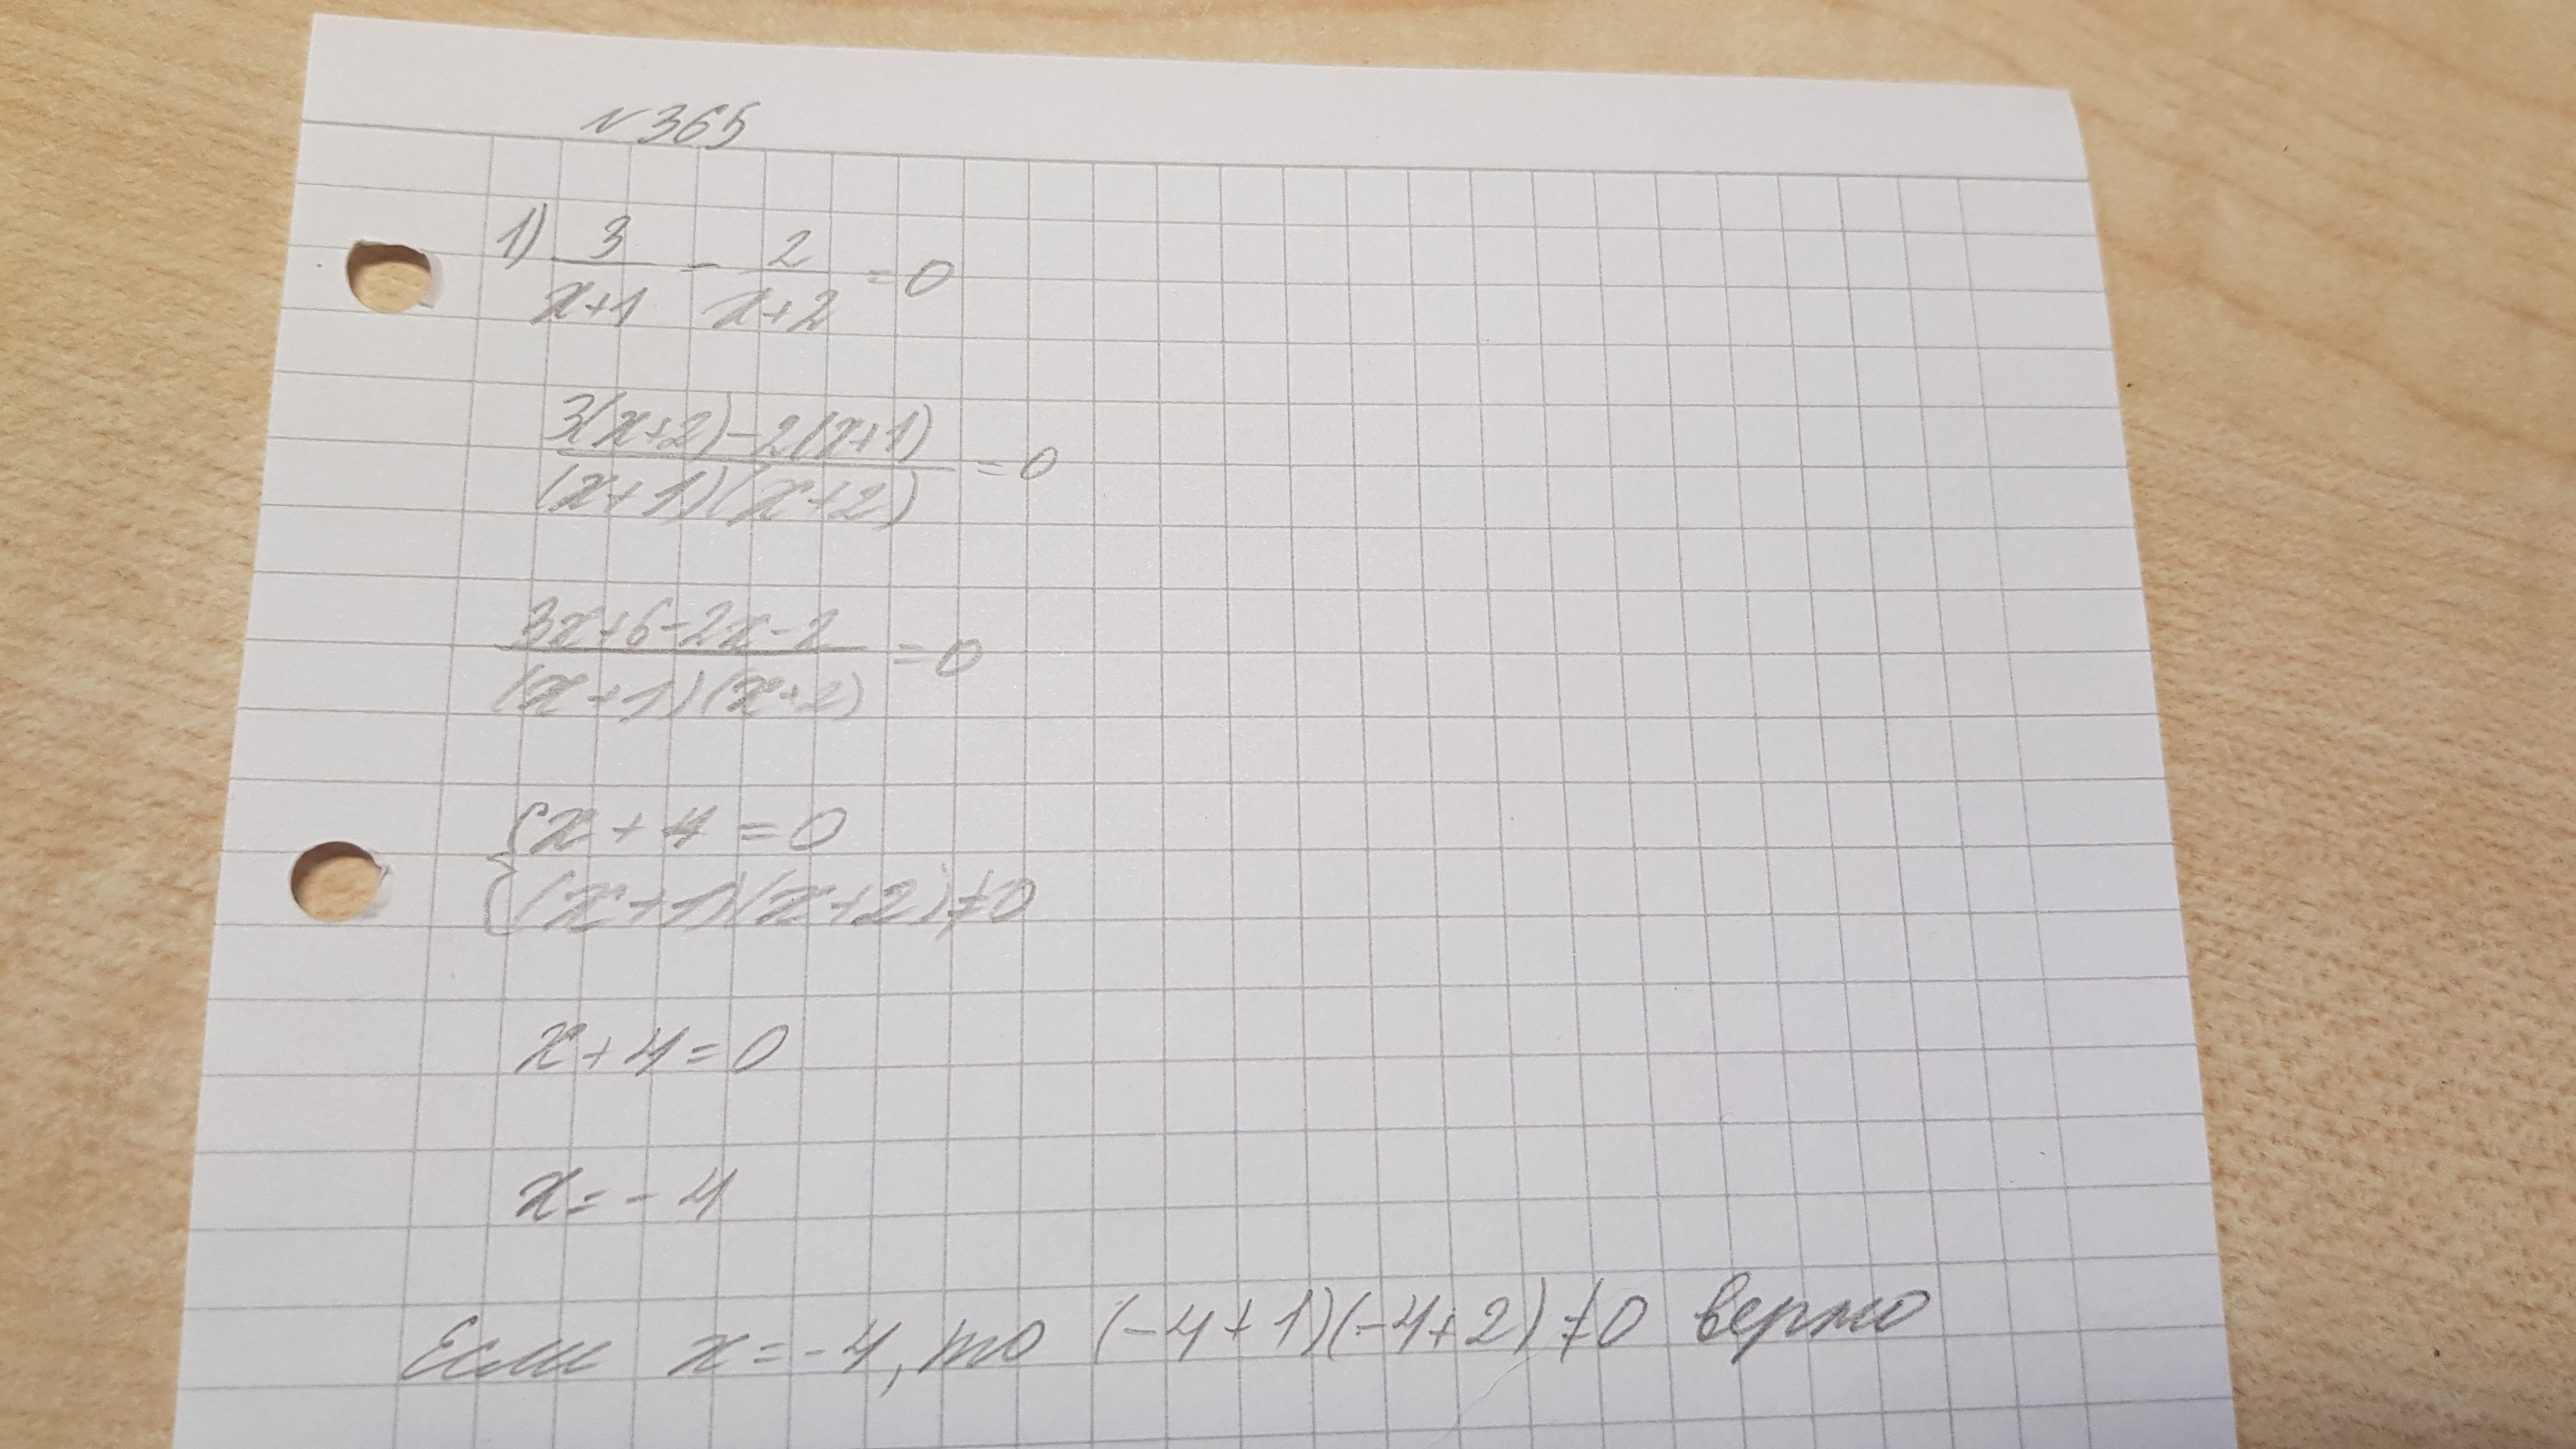 №365
1) 3/(x+1) - 2/(x+2) = 0
(3(x+2)-2(x+1))/((x+1)(x+2)) = 0
(3x+6-2x-2)/((x+1)(x+2)) = 0
{x+4=0
{(x+1)(x+2)≠0
x+4=0
x=-4
Если x=-4, то (-4+1)(-4+2)≠0 верно